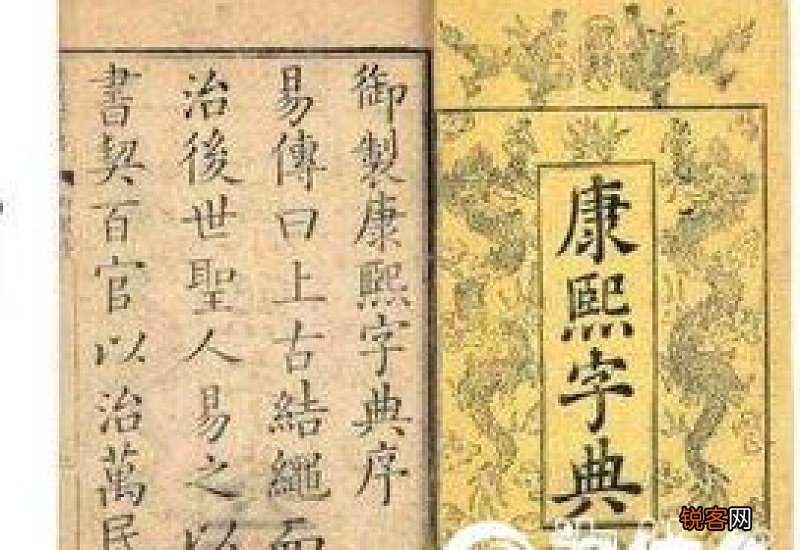 康熙字典
御製康熙字典序
易傳曰上古結繩而
治後世聖人易之以
書契百官以治萬民
锐客网